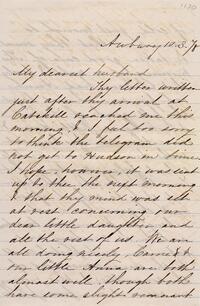 My dearest husband
Thy letter written
just after thy arrival at
Catskill reached me this
morning & I feel too sorry
to think the telegram did
not get to Hudson in time
I hope however it was sent
up to thee the next morning
& that thy mind was set
at rest concerning our
dear little daughter and
all the rest of us. We are
all doing nicely, Carrie &
our little Anna are both
almost well, though both
have some slight remnant